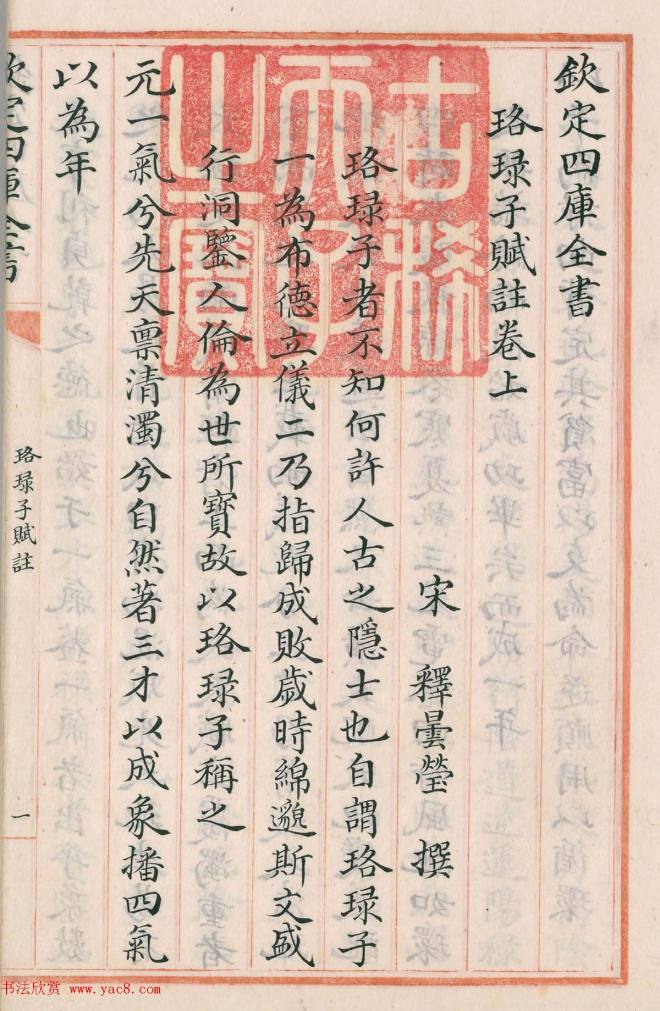 欽定四庫全書
珞琭子賦註卷上
宋 釋曇瑩 撰
珞琭子者不知何許人古之隱士也自謂珞琭子
一為布德立儀二乃指歸成敗歲時綿邈斯文盛
行洞鑒人倫為世所寶故以珞琭子稱之
元一氣兮先天禀清濁兮自然著三才以成象播四氣
以為年
欽定四庫全書
珞琭子賦註
一
古稀天子之寶
书法欣赏 www.yac8.com